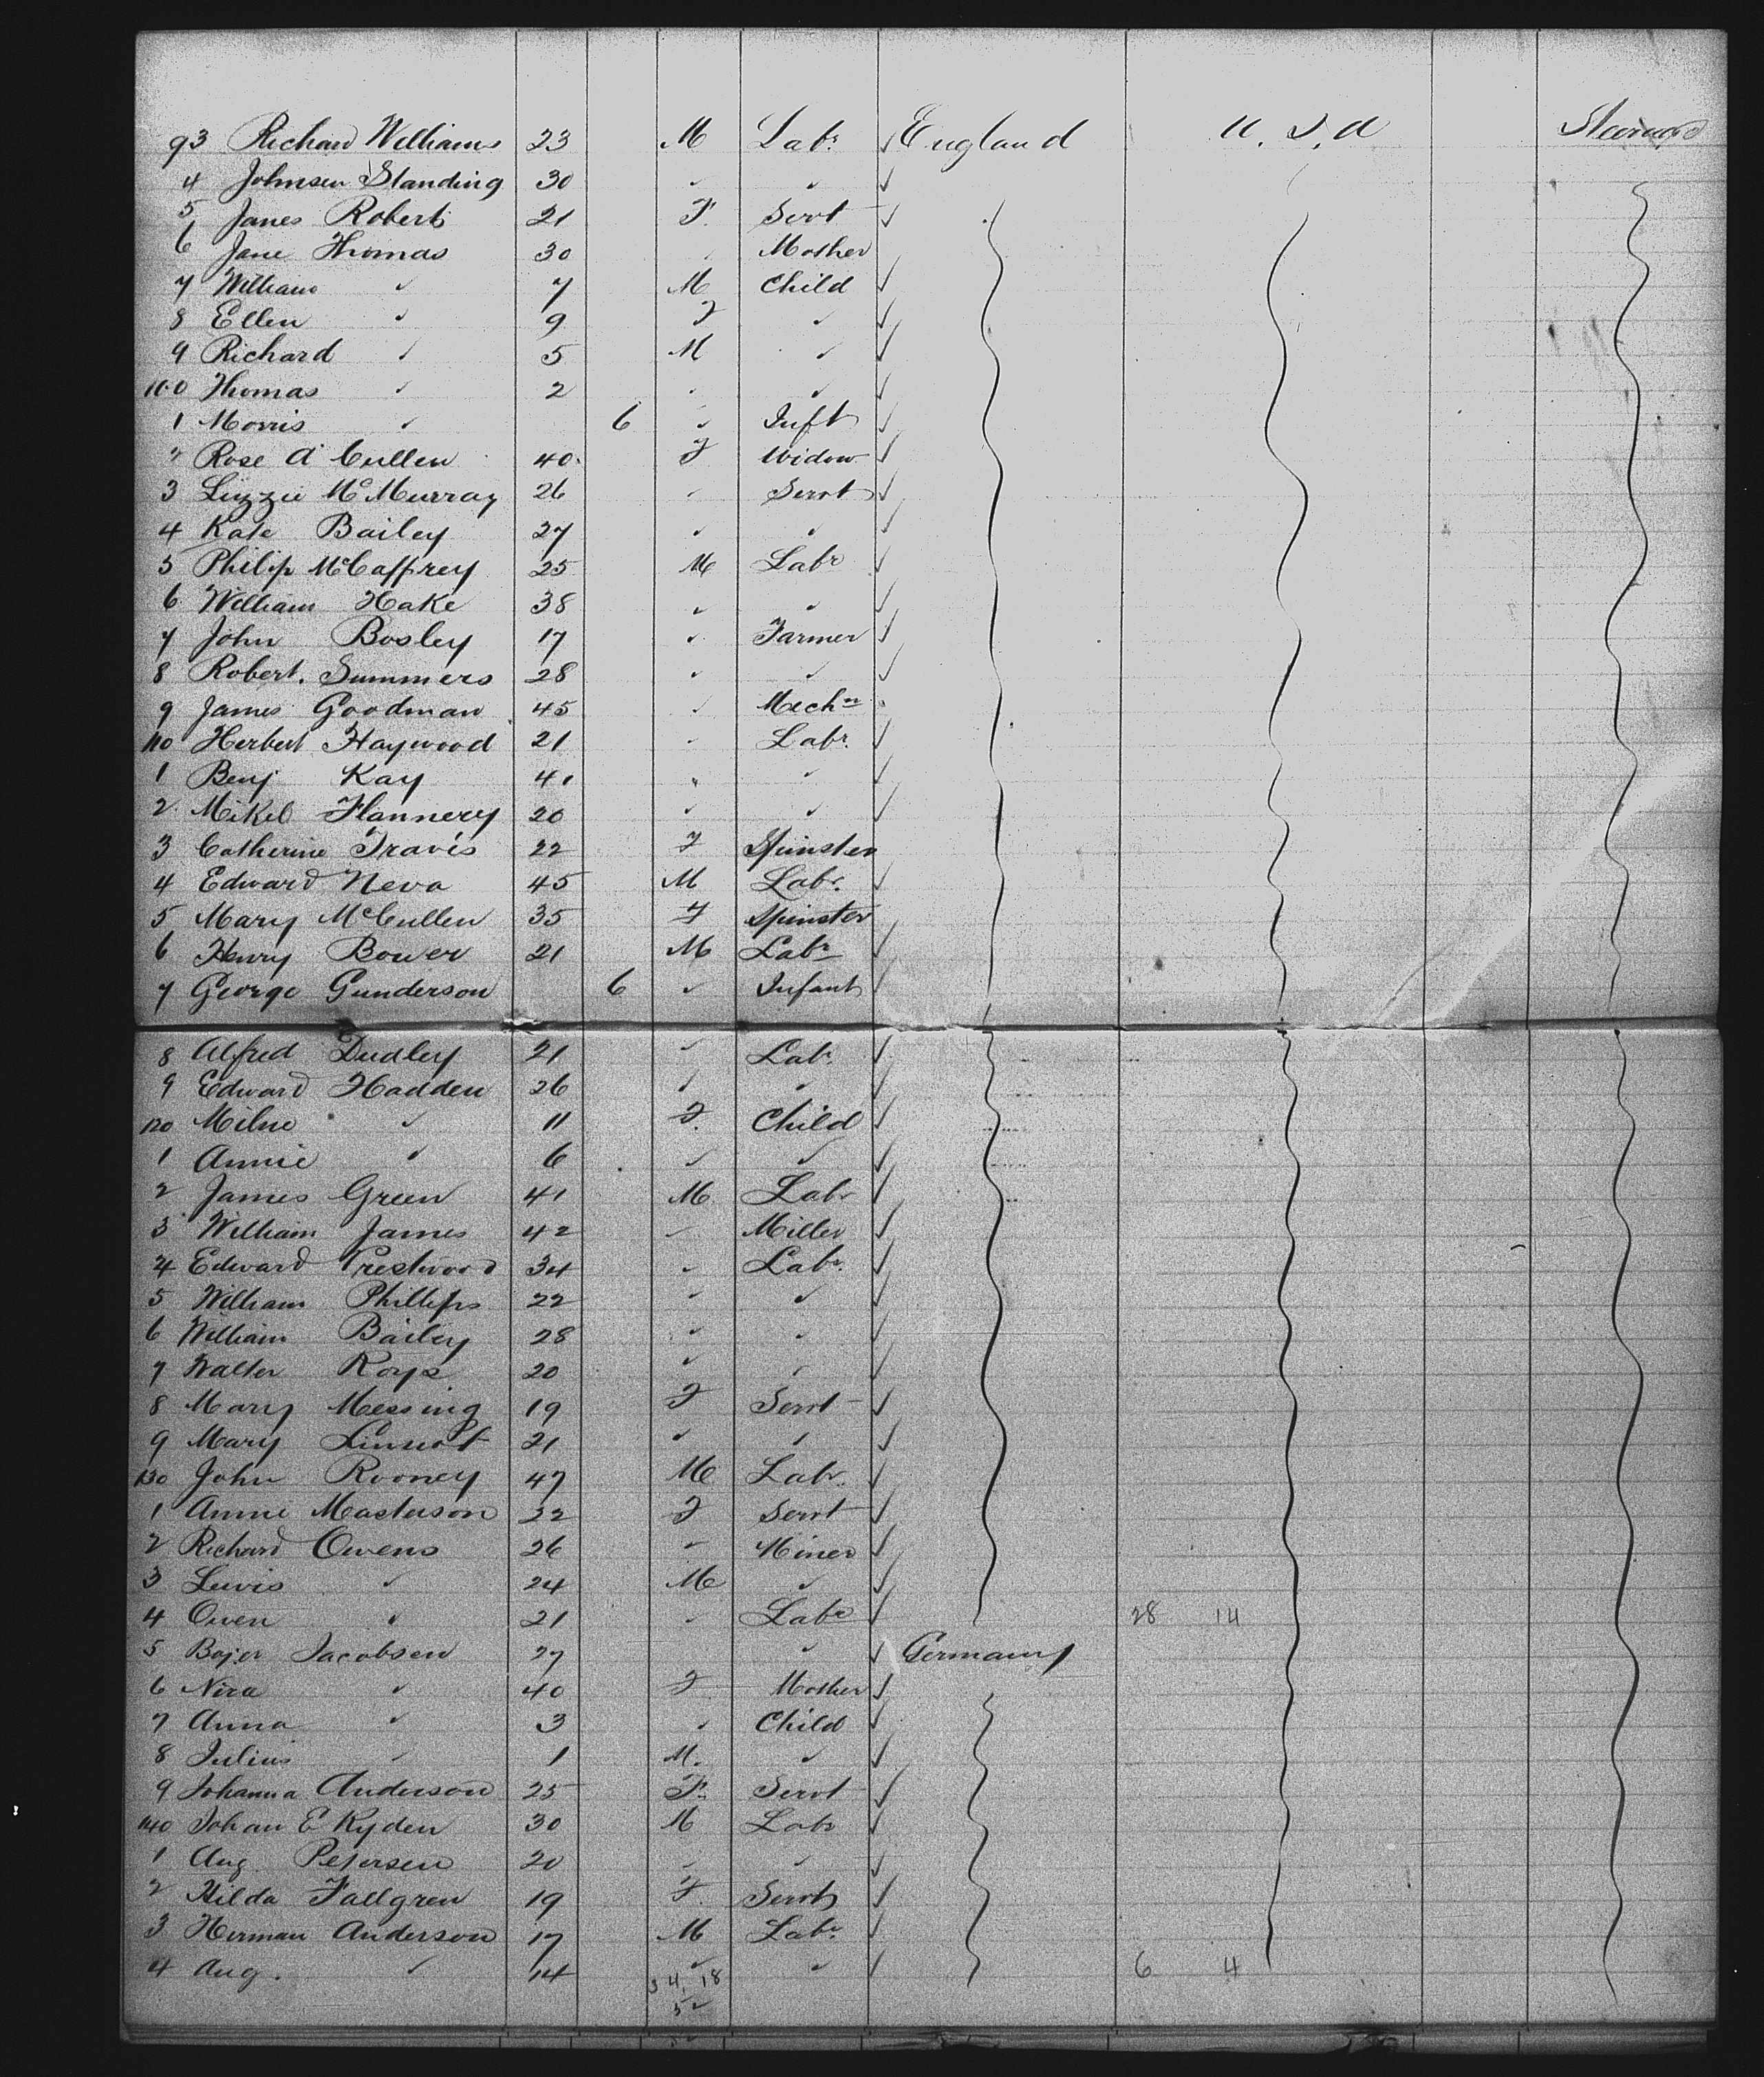 93 Richard Williams 23 M Labr ✓ England U.S.A Steerage
4 Johnson Standing 30 ✓ ✓ ✓
5 Janes Roberts 21 F. Servt ✓
6 Jane Thomas 30 ✓ Mother
7 William ✓ 7 M Child ✓
8 Ellen ✓ 9 F ✓ ✓
9 Richard ✓ 5 M ✓ ✓
100 Thomas ✓ 2 ✓ ✓ ✓
1 Morris ✓ 6 ✓ Inft ✓
" Rose A Cullen 40 F Widow ✓
3 Lizzie McMurray 26 ✓ Servt ✓
4 Kate Bailey 27 ✓ ✓ ✓
5 Philip McCaffrey 25 M Labr ✓
6 William Hake 38 ✓ ✓ ✓
7 John Bosley 17 ✓ Farmer ✓
8 Robert Summers 28 ✓ ✓ ✓
9 James Goodman 45 ✓ Mechn
110 Herbert Haywood 21 ✓ Labr ✓
1 Benj Kay 41 " ✓ ✓
2 Mikel Flannery 20 ✓ ✓ ✓
3 Catherine Travis 22 F Spinster
4 Edward Neva 45 M Labr. ✓
5 Mary McCullen 35 F Spinster ✓
6 Henry Bower 21 M Labr ✓
7 George Gunderson 6 ✓ Infant ✓
8 Alfred Dudley 21 ✓ Labr. ✓
9 Edward Hadden 26 ✓ ✓ ✓
120 Milne ✓ 11 F. Child ✓
1 Annie ✓ 6 ✓ ✓ ✓
2 James Green 41 M Labr ✓
3 William James 42 ✓ Miller ✓
4 Edward Prestwood 34 ✓ Labr. ✓
5 William Phillips 22 ✓ ✓ ✓
6 William Bailey 28 ✓ ✓ ✓
7 Walter 20 ✓ ✓ ✓
8 Mary Messing 19 F Servt ✓
9 Mary 21 ✓ ✓ ✓
130 John Rooney 47 M Labr. ✓
1 Annie Masterson 32 F Servt ✓
2 Richard Owens 26 ✓ Miner ✓
3 Lewis ✓ 24 M ✓ ✓
4 Owen ✓ 21 ✓ Labr ✓ 28 14
5 Jacobsen 27 ✓ ✓ Germany
6 Nira ✓ 40 F Mother ✓
7 Anna ✓ 3 ✓ Child ✓
8 Julius ✓ 1 M. ✓ ✓
9 Johanna Anderson 25 F. Servt ✓
140 Johan E Ryden 30 M Labr ✓
1 Aug. Petersen 20 ✓ ✓ ✓
2 Hilda Fallgren 19 F. Servt ✓
3 Herman Anderson 17 M Labr. ✓
4 Aug. ✓ 14 ✓ ✓ ✓ 6 4
34 18
52